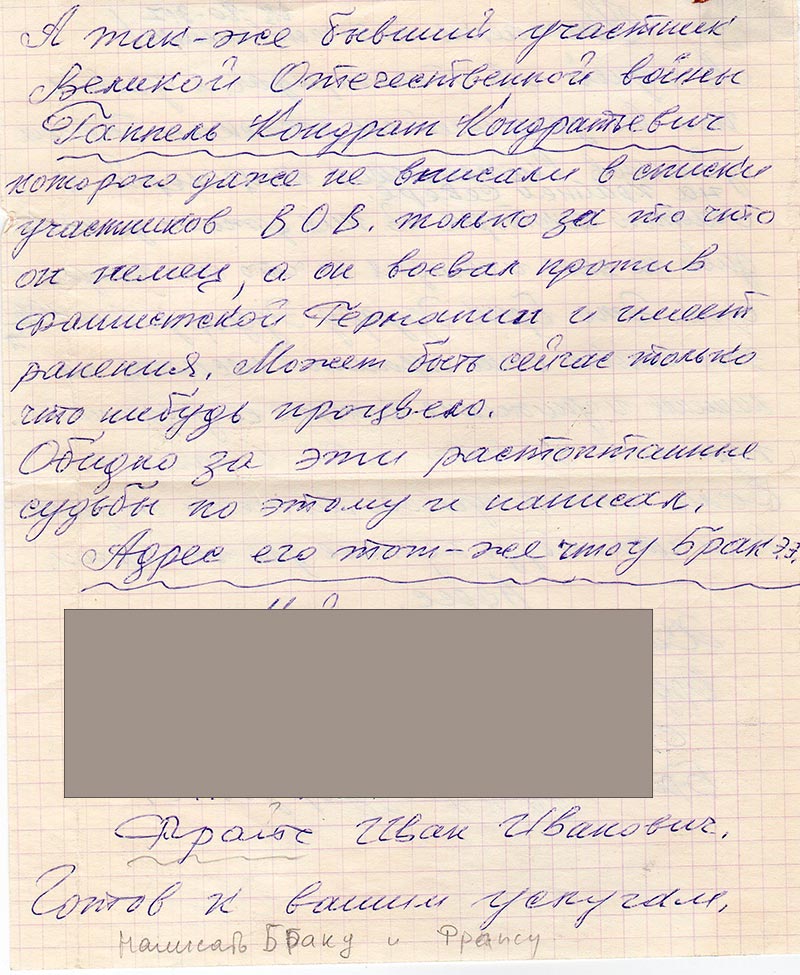 А так-же бывший участник
Великой Отечественной войны
Гаппель Кондрат Кондратьевич
которого даже не вписали в списки
участников ВОВ. только за то что
он немец, а он воевал против
фашистской Германии и имеет
ранения. Может быть сейчас только
что нибудь процвело.
Обидно за эти растоптанные
судьбы по этому и написал.
Адрес его тот-же что у Брак Э.Э.
Иван Иванович.
Готов к вашим услугам.
Написать Браку и